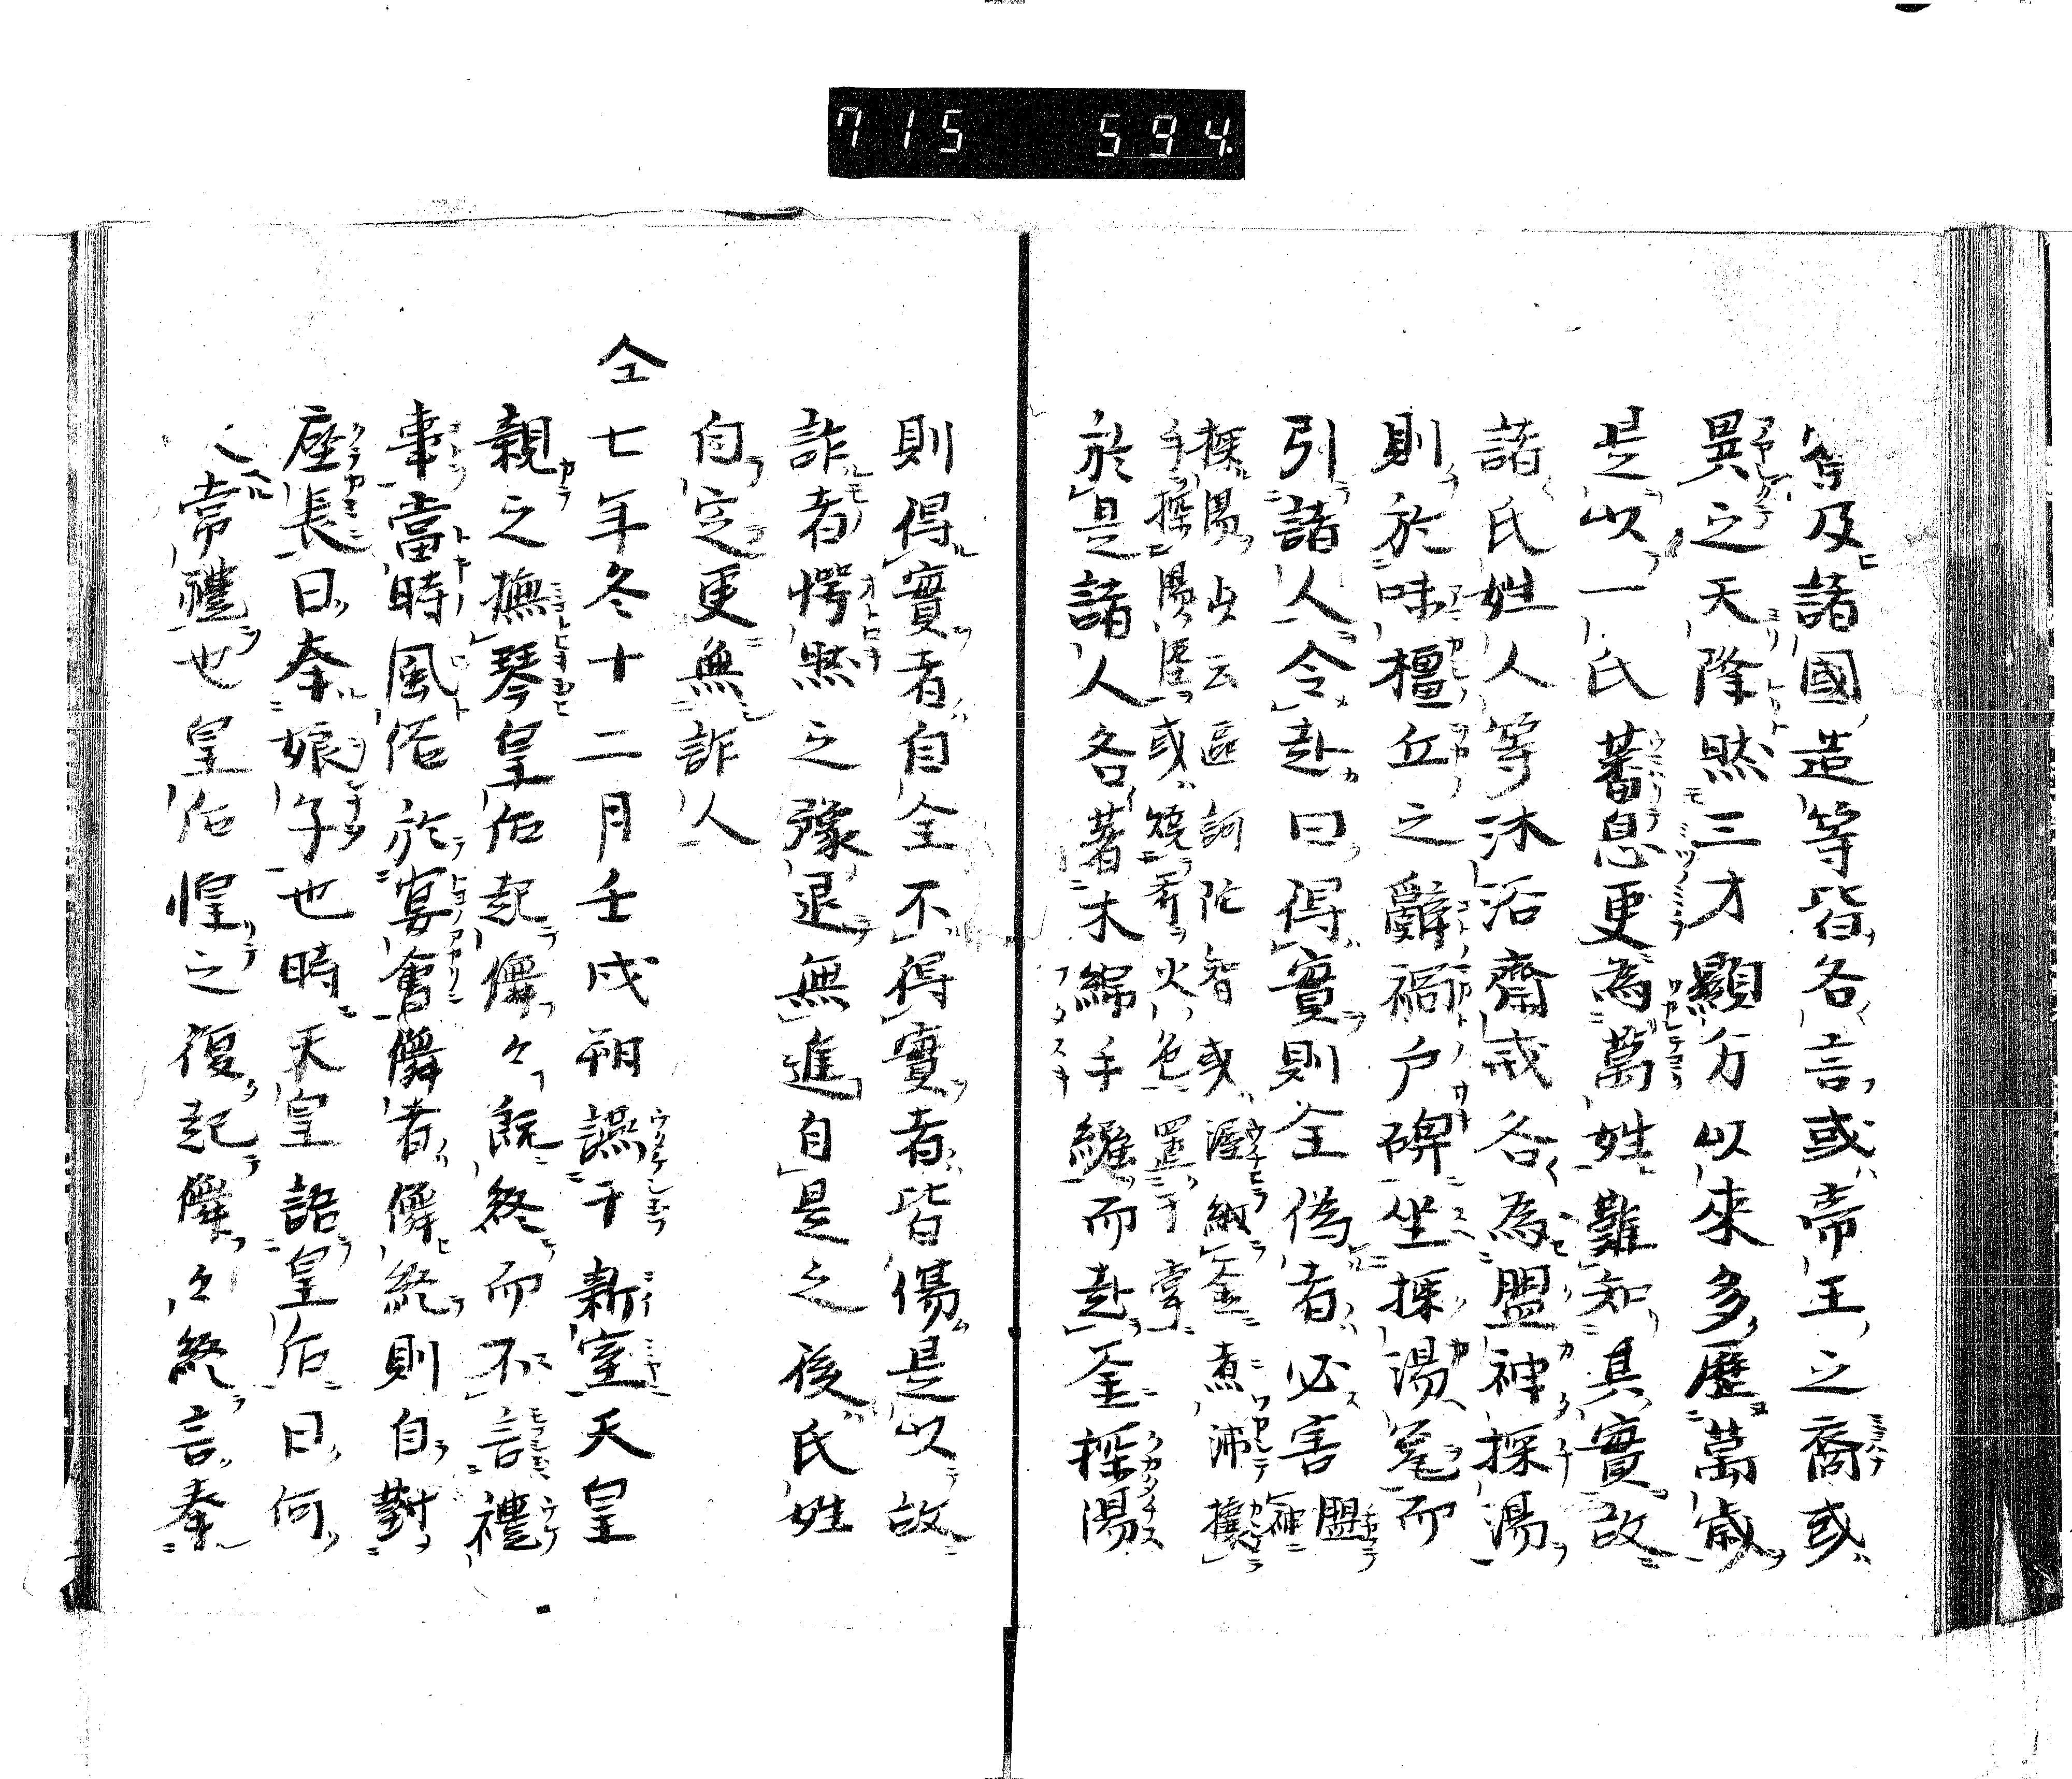 715 594
寮及諸國造等皆各言或帝王之裔或
異之天降然三才顯分以來多歷萬歲
是以一氏蕃息更為萬姓難知其實故
諸氏姓人等沐浴齋戒各為盟神探湯
則於味橿丘之辭禍戶碑坐探湯瓮而
引諸人令赴曰得實則全偽者必害盟神
探湯此云區訶陀智或泥納釜煮沸攘
手探湯泥或燒斧火色置于掌
於是諸人各著木綿手繦而赴釜探湯
則得實者自全不得實者皆傷是以故
詐者愕然之豫退無進自是之後氏姓
自定更無詐人
仝七年冬十二月壬戌朔讌于新室天皇
親之撫琴皇后起儛々既終而不言禮
事當時風俗於宴會儛者儛終則自對
座長曰奉娘子也時天皇語皇后曰何
常禮也皇后惶之復起儛々終言奉